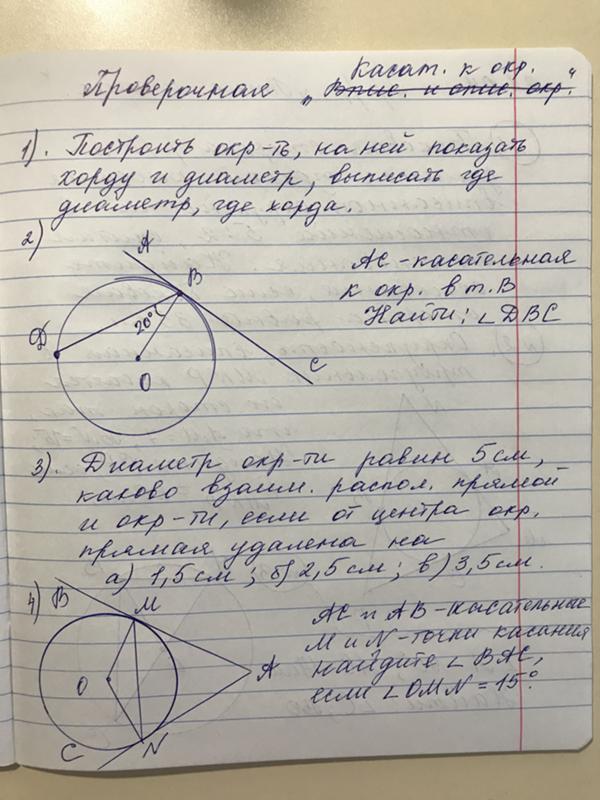 Касат. к окр.
Проверочная „Впис. и опис. окр."
1). Построить окр-ть, на ней показать
хорду и диаметр, выписать где
диаметр, где хорда.
2)
A
B
D
20°
O
C
AC - касательная
к окр. в т. B
Найти: ∠DBC
3). Диаметр окр-ти равен 5 см,
каково взаим. распол. прямой
и окр-ти, если от центра окр.
прямая удалена на
а) 1,5 см; б) 2,5 см; в) 3,5 см.
4)
B
M
O
A
C
N
AC и AB - касательные
M и N - точки касания
найдите ∠BAC,
если ∠OMN = 15°.